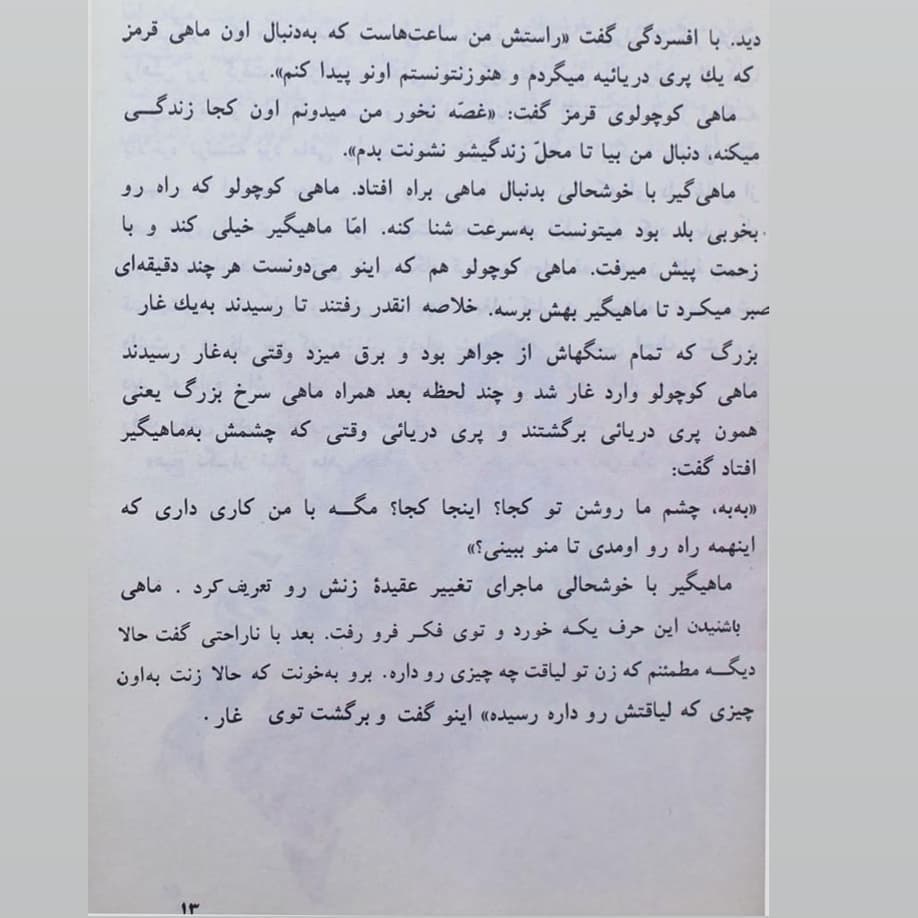 دید. با افسردگی گفت «راستش من ساعت‌هاست که به‌دنبال اون ماهی قرمز
که یك پری دریائیه میگردم و هنوزنتونستم اونو پیدا کنم».
ماهی کوچولوی قرمز گفت: «غصّه نخور من میدونم اون کجا زندگـــی
میکنه، دنبال من بیا تا محلّ زندگیشو نشونت بدم».
ماهی‌گیر با خوشحالی بدنبال ماهی براه افتاد. ماهی کوچولو که راه رو
بخوبی بلد بود میتونست به‌سرعت شنا کنه. امّا ماهیگیر خیلی کند و با
زحمت پیش میرفت. ماهی کوچولو هم که اینو می‌دونست هر چند دقیقه‌ای
صبر میکـرد تا ماهیگیر بهش برسه. خلاصه انقدر رفتند تا رسیدند به‌یك غار
بزرگ که تمام سنگهاش از جواهر بود و برق میزد وقتی به‌غار رسیدند
ماهی کوچولو وارد غار شد و چند لحظه بعد همراه ماهی سرخ بزرگ یعنی
همون پری دریائی برگشتند و پری دریائی وقتی که چشمش به‌ماهیگیر
افتاد گفت:
«به‌به، چشم ما روشن تو کجا؟ اینجا کجا؟ مگـــه با من کاری داری که
اینهمه راه رو اومدی تا منو ببینی؟»
ماهیگیر با خوشحالی ماجرای تغییر عقیدهٔ زنش رو تعریف کرد . ماهی
باشنیدن این حرف یکـه خورد و توی فکـر فرو رفت. بعد با ناراحتی گفت حالا
دیگـــه مطمئنم که زن تو لیاقت چه چیزی رو داره. برو به‌خونت که حالا زنت به‌اون
چیزی که لیاقتش رو داره رسیده» اینو گفت و برگشت توی غار .
۱۳